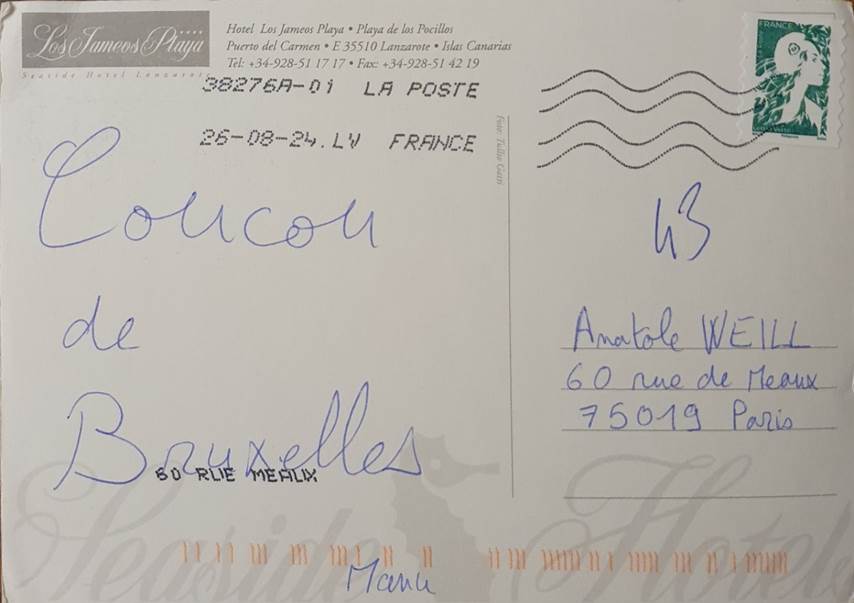 Los Jameos Playa
Seaside Hotel Lanzarote
Hotel Los Jameos Playa • Playa de los Pocillos
Puerto del Carmen • E 35510 Lanzarote • Islas Canarias
Tel: +34-928-51 17 17 • Fax: +34-928-51 42 19
38276A-01 LA POSTE
26-08-24.LV FRANCE
FRANCE
Coucou
de
Bruxelles
60 RUE MEAUX
Manu
43
Anatole WEILL
60 rue de Meaux
75019 Paris
Seaside Hotels